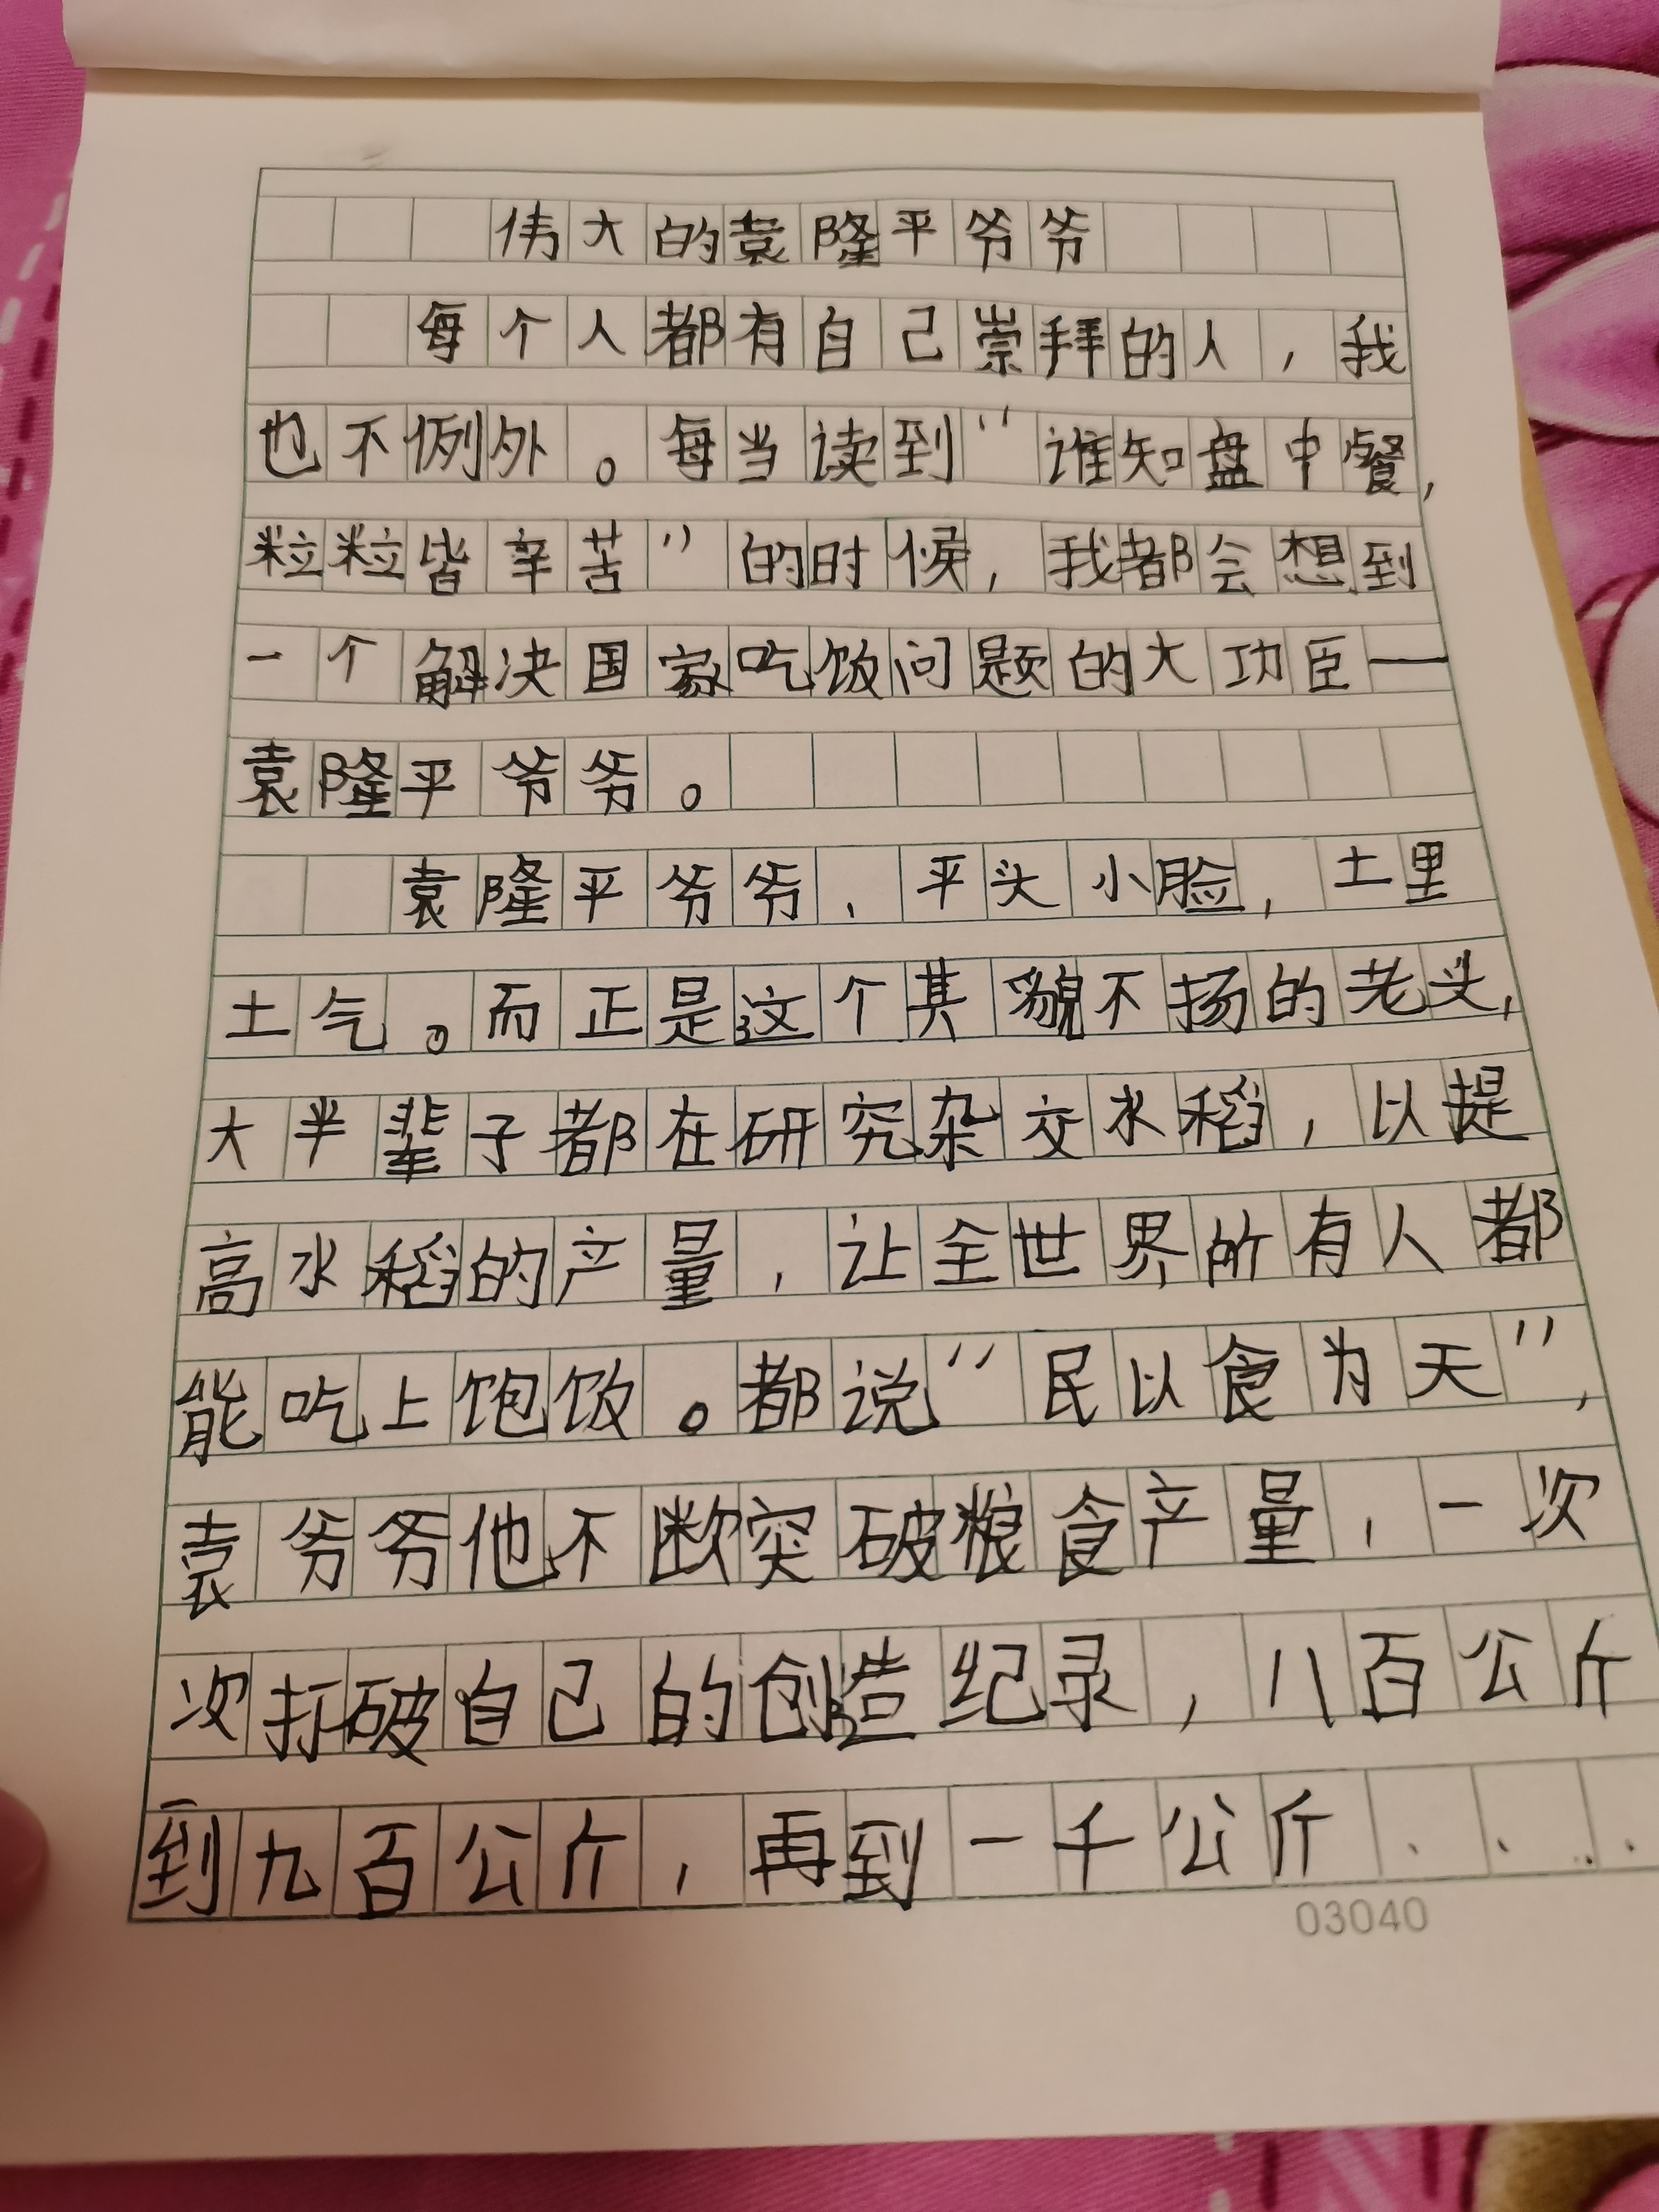 伟大的袁隆平爷爷
每个人都有自己崇拜的人，我
也不例外。每当读到“谁知盘中餐，
粒粒皆辛苦”的时候，我都会想到
一个解决国家吃饭问题的大功臣—
袁隆平爷爷。
袁隆平爷爷，平头小脸，土里
土气。而正是这个其貌不扬的老头，
大半辈子都在研究杂交水稻，以提
高水稻的产量，让全世界所有人都
能吃上饱饭。都说“民以食为天”，
袁爷爷他不断突破粮食产量，一次
次打破自己的创造纪录，八百公斤
到九百公斤，再到一千公斤．．．．．
03040